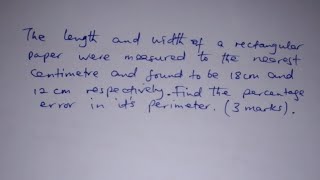 The length and width of a rectangular
paper were measured to the nearest
Centimetre and found to be 18cm and
12 cm respectively. Find the percentage
error in it's perimeter. (3 marks).